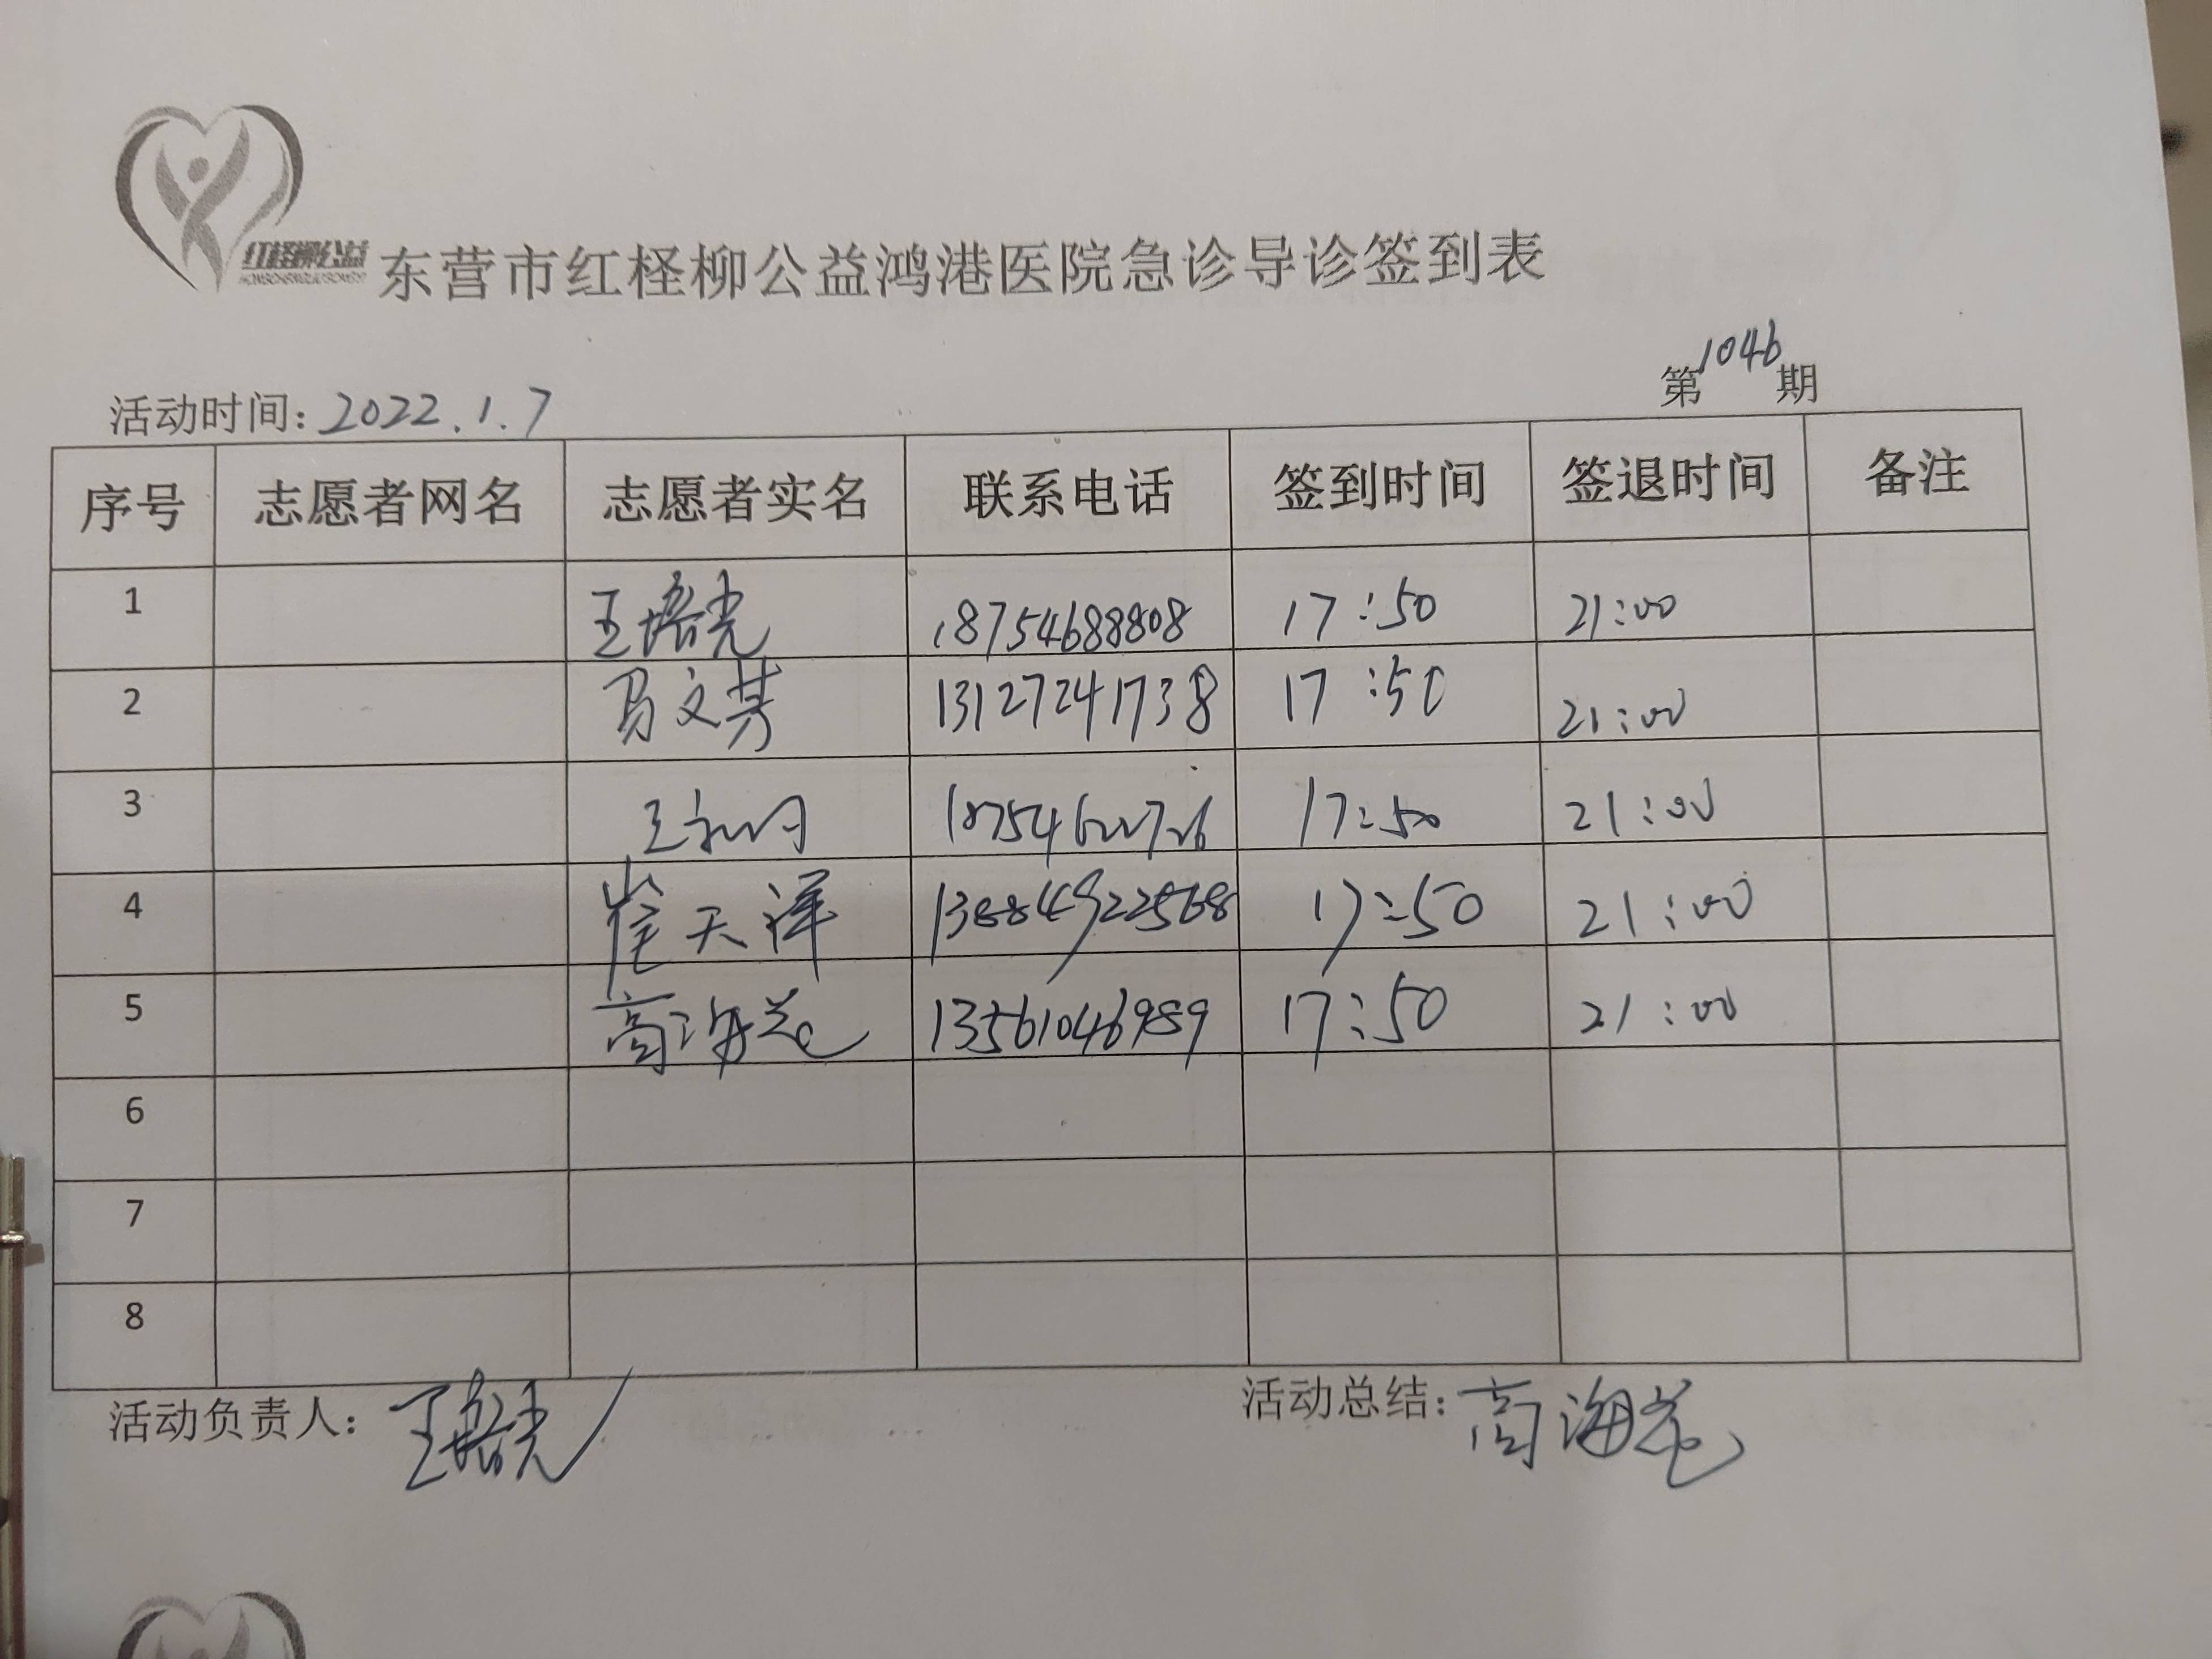 红柽柳公益
东营市红柽柳公益鸿港医院急诊导诊签到表
第1046期
活动时间: 2022.1.7
序号 志愿者网名 志愿者实名 联系电话 签到时间 签退时间 备注
1 王培光 18754688808 17:50 21:00
2 马文芳 13127241738 17:50 21:00
3 王 17:50 21:00
4 崔天泽 13884922568 17:50 21:00
5 高海花 13561046989 17:50 21:00
6
7
8
活动负责人: 王培光 活动总结: 高海花